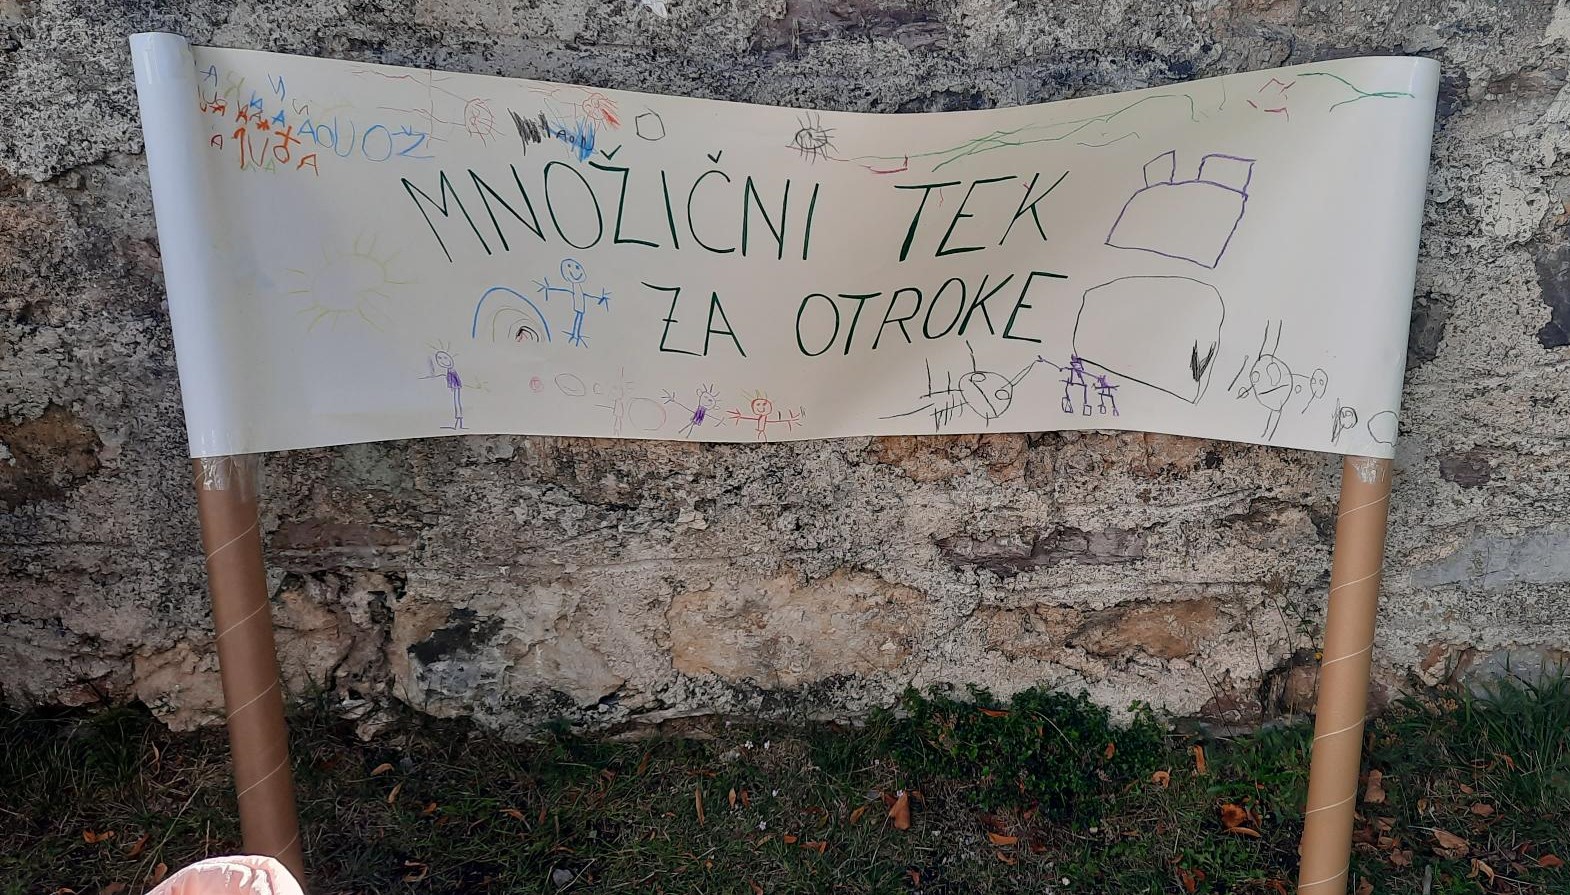 MNOŽIČNI TEK
ZA OTROKE